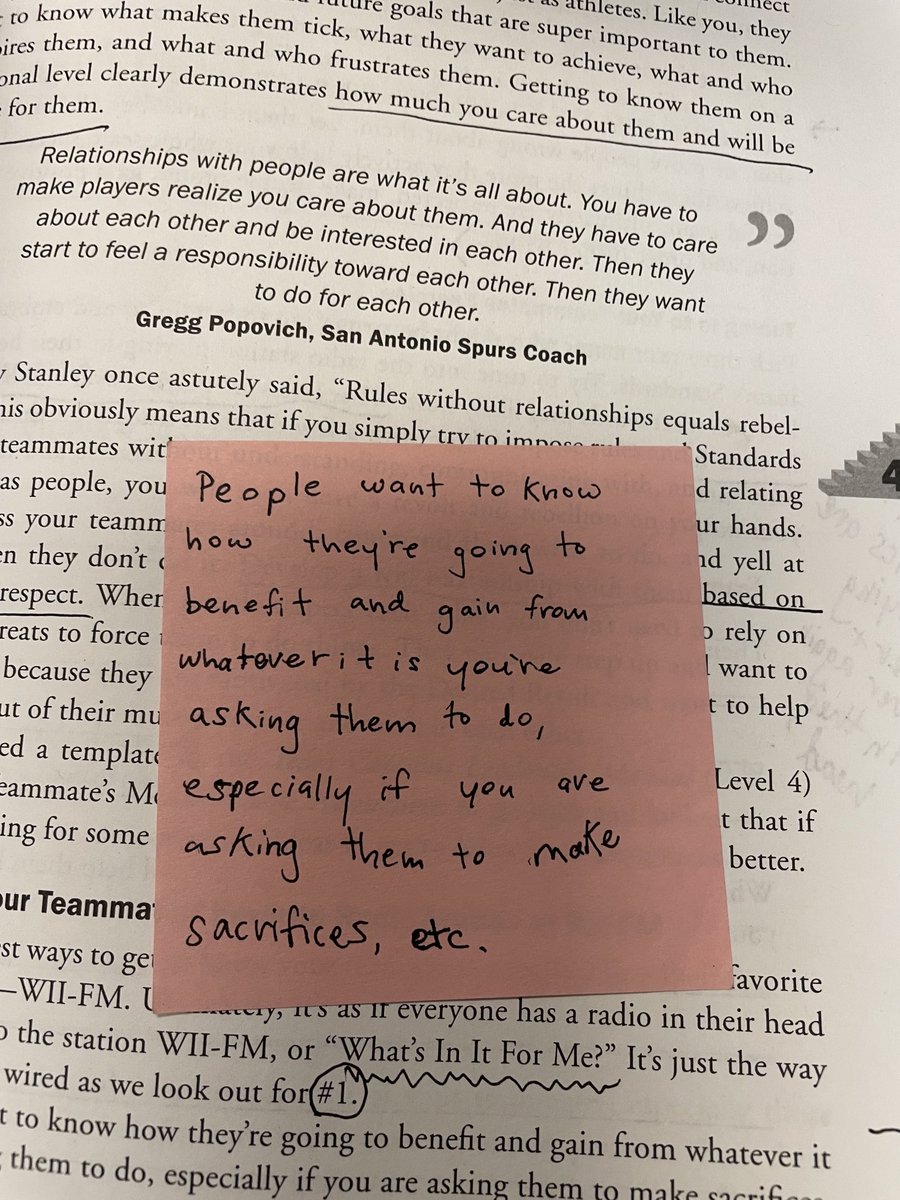 as athletes. Like you, they
future goals that are super important to them.
to know what makes them tick, what they want to achieve, what and who
them, and what and who frustrates them. Getting to know them on a
level clearly demonstrates how much you care about them and will be
for them.
Relationships with people are what it's all about. You have to
make players realize you care about them. And they have to care
about each other and be interested in each other. Then they
start to feel a responsibility toward each other. Then they want
to do for each other.
”
Gregg Popovich, San Antonio Spurs Coach
Stanley once astutely said, “Rules without relationships equals rebel-
obviously means that if you simply try to impose
teammates Standards
as people, you relating
your teamm hands.
they don't yell at
respect. When based on
to force rely on
because they want to
of their to help
a template
Level 4)
for some that if
better.
People want to know
how they're going to
benefit and gain from
whatever it is you're
asking them to do,
especially if you are
asking them to make
sacrifices, etc.
4
ways to get favorite
—WII-FM. it's as if everyone has a radio in their head
the station WII-FM, or “What's In It For Me?” It's just the way
wired as we look out for #1.
to know how they're going to benefit and gain from whatever it
them to do, especially if you are asking them to make